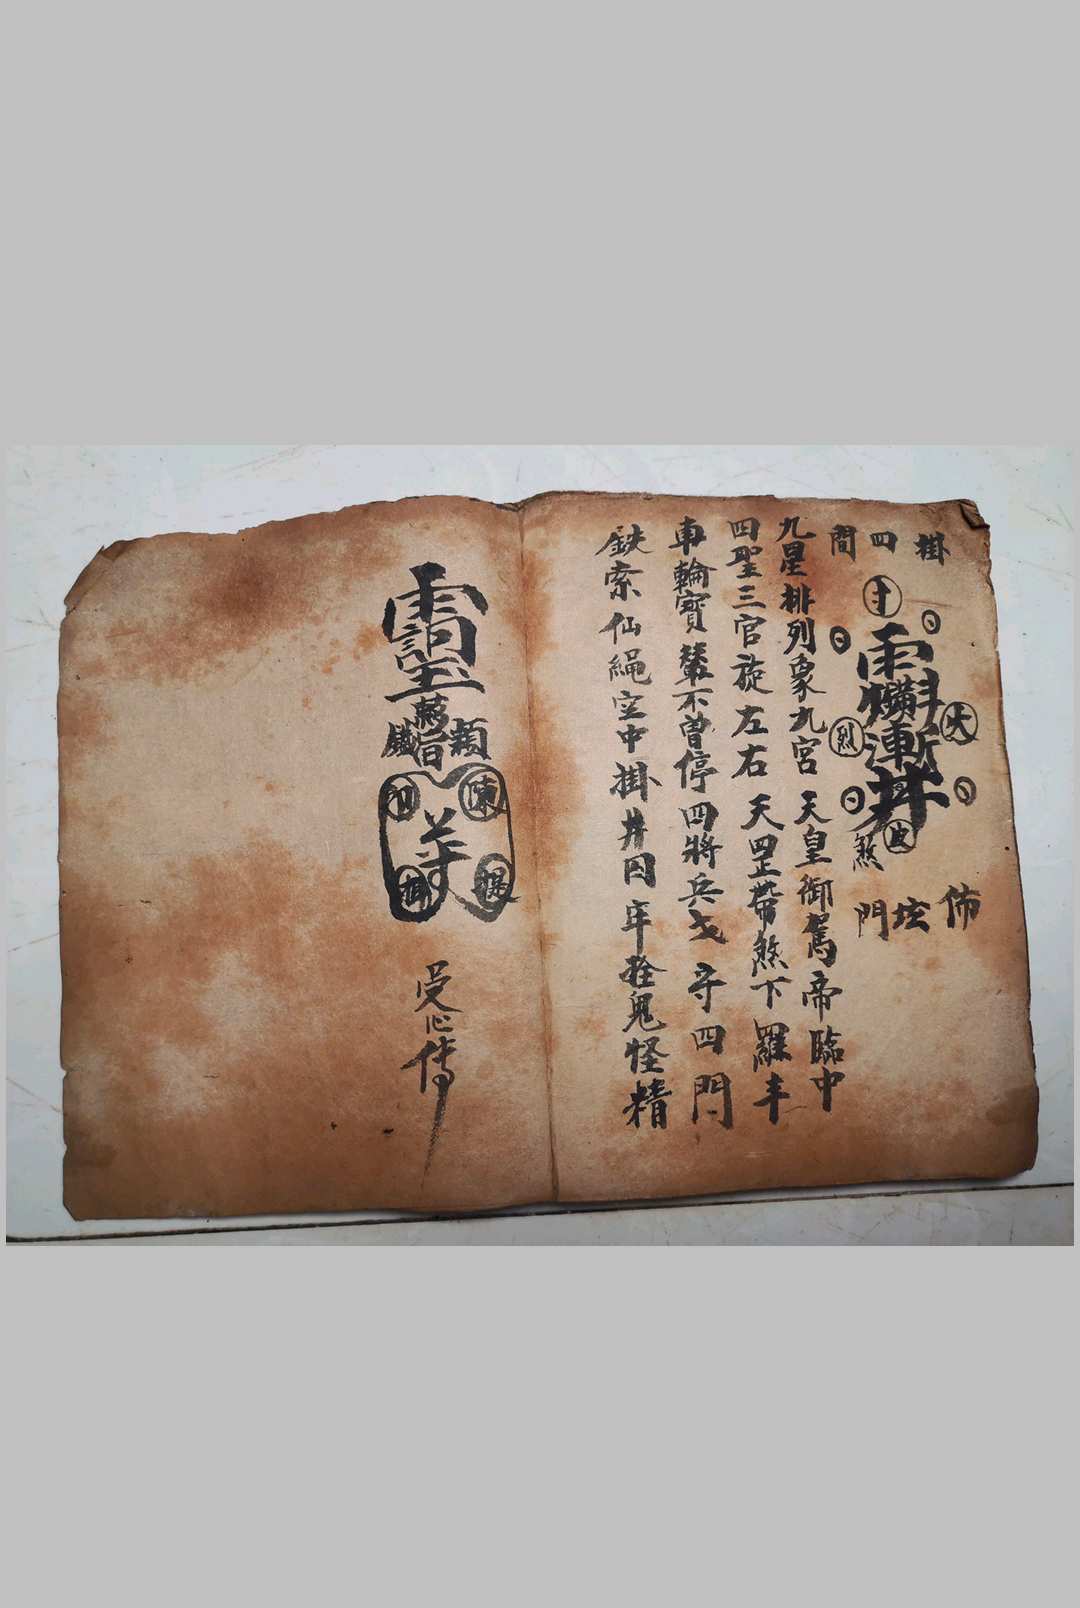 掛四間
佈坛門
煞
大
烈
九星排列象九宮天皇御駕帝臨中
四聖三官旋左右天罡帶煞下羅丰
車輪寶輦不曾停四將兵戈守四門
鉄索仙繩空中掛井囚牢拴鬼怪精
受心傳